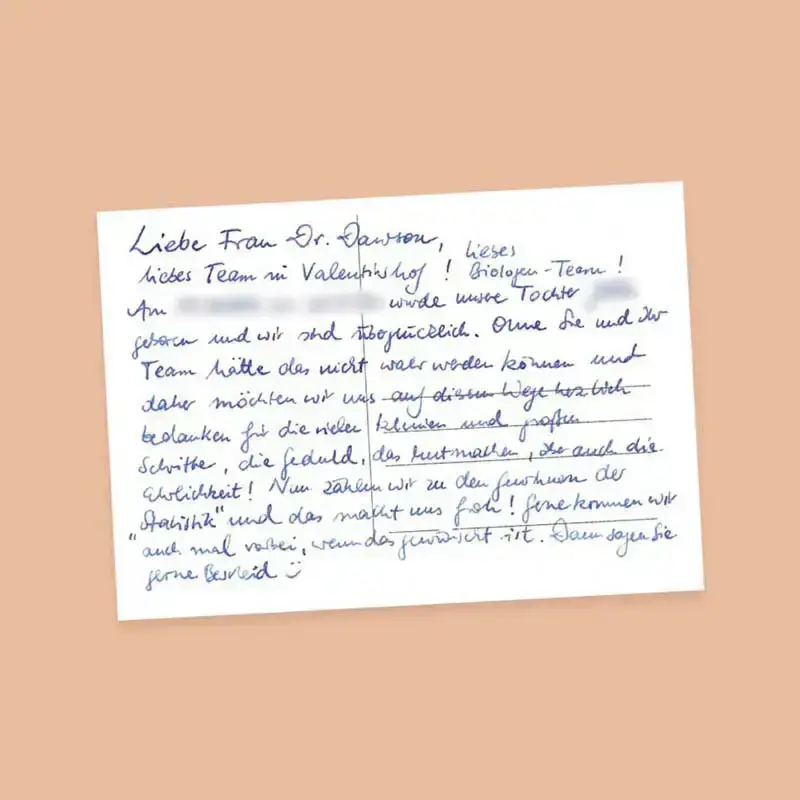 Liebe Frau Dr. Dawson,
liebes Team in Valentinshof ! liebes Biologen-Team !
Am wurde unsere Tochter
geboren und wir sind überglücklich. Ohne Sie und Ihr
Team hätte das nicht wahr werden können und
daher möchten wir uns auf diesem Wege herzlich
bedanken für die vielen kleinen und großen
Schritte, die Geduld, das Mutmachen, aber auch die
Ehrlichkeit! Nun zählen wir zu den Gewinnern der
"Statistik" und das macht uns froh! Gerne kommen wir
auch mal vorbei, wenn das gewünscht ist. Dann sagen Sie
gerne Bescheid ☺